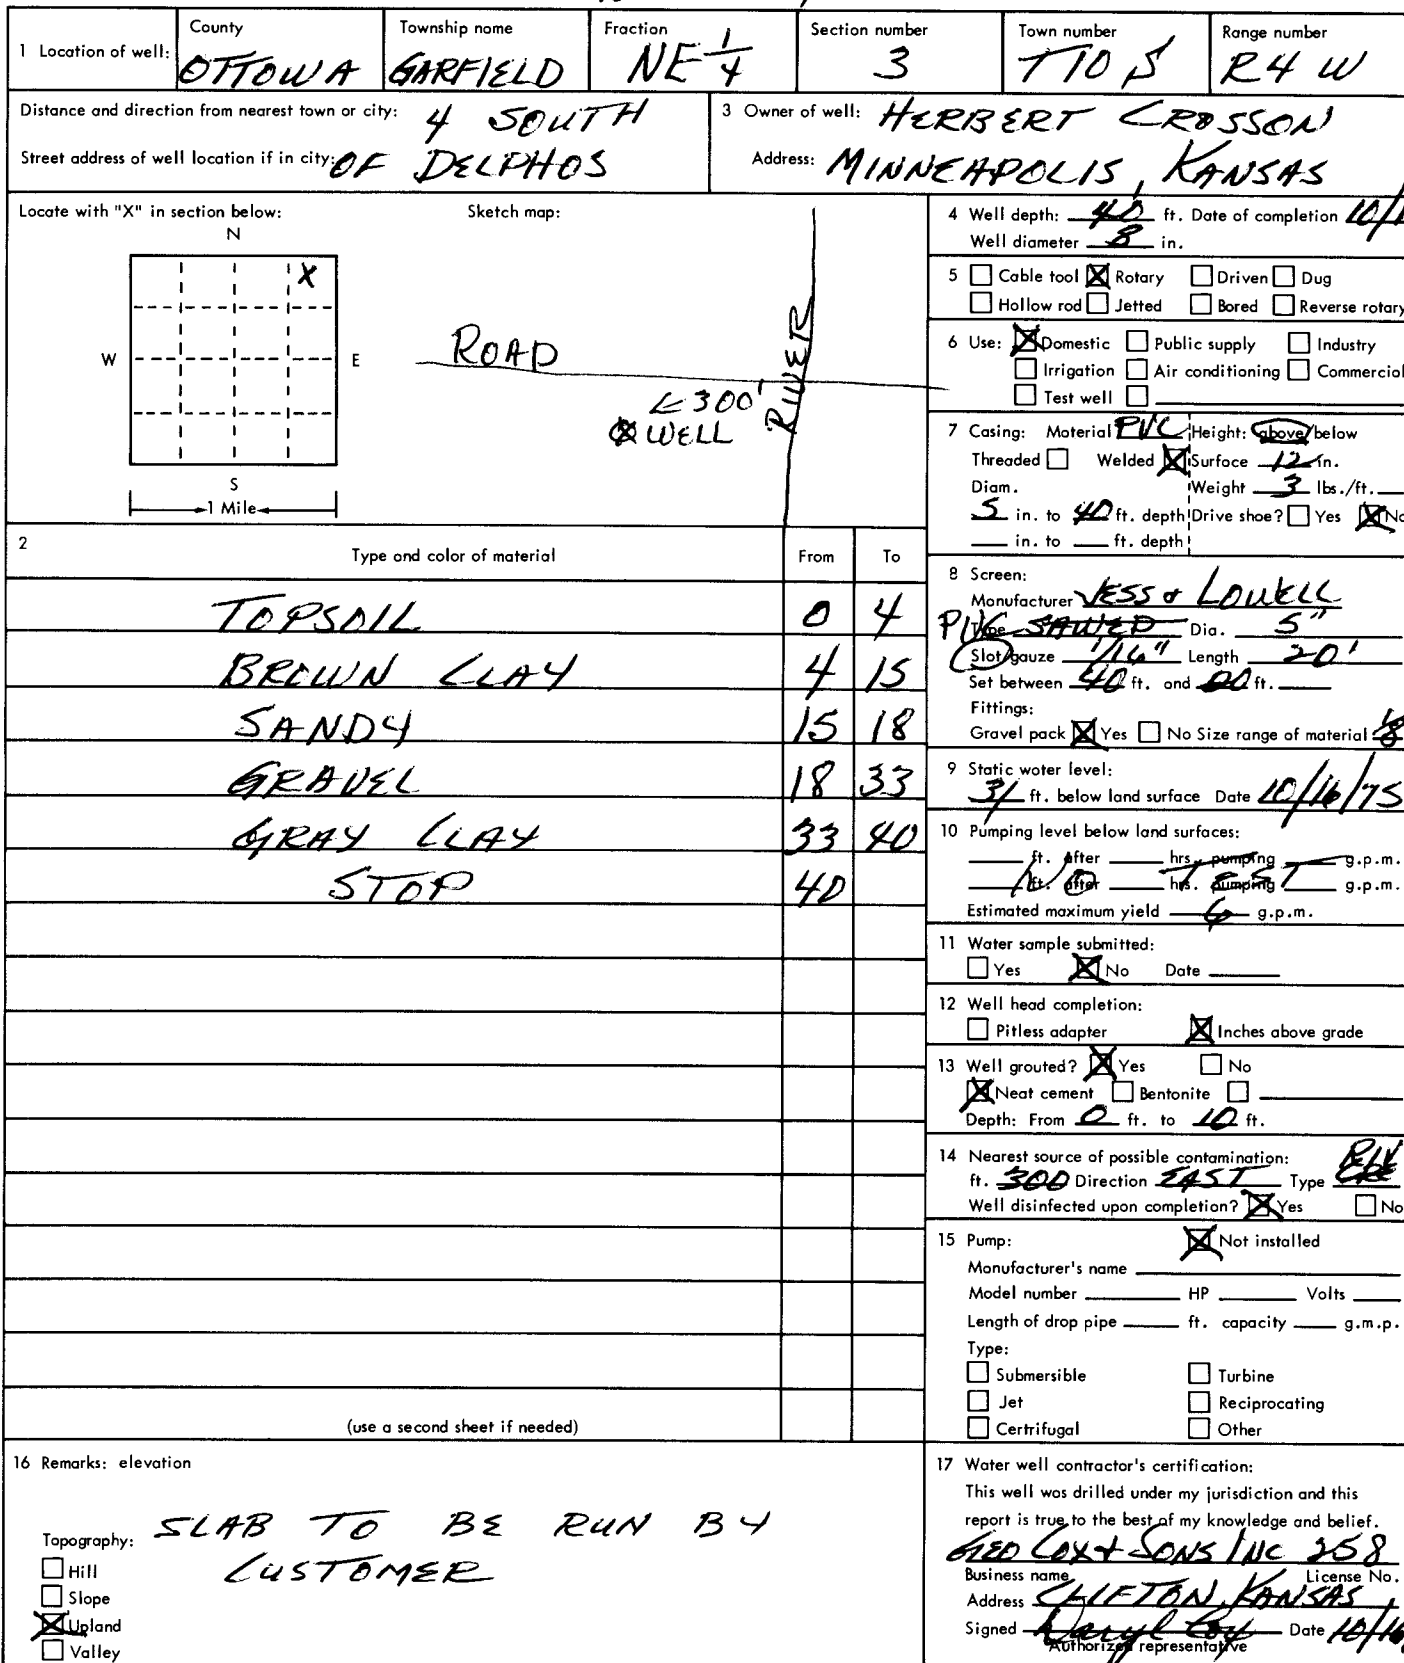 1 Location of well:
County
OTTOWA
Township name
GARFIELD
Fraction
NE 1/4
Section number
3
Town number
T10 S
Range number
R4 W
Distance and direction from nearest town or city: 4 SOUTH
Street address of well location if in city: OF DELPHOS
3 Owner of well: HERBERT CROSSON
Address: MINNEAPOLIS, KANSAS
Locate with "X" in section below:
Sketch map:
N
X
W
E
S
1 Mile
ROAD
RIVER
300'
WELL
2
Type and color of material From To
TOPSOIL 0 4
BROWN CLAY 4 15
SANDY 15 18
GRAVEL 18 33
GRAY CLAY 33 40
STOP 40
(use a second sheet if needed)
4 Well depth: 40 ft. Date of completion 10/
Well diameter 8 in.
5 Cable tool Rotary Driven Dug
Hollow rod Jetted Bored Reverse rotary
6 Use: Domestic Public supply Industry
Irrigation Air conditioning Commercial
Test well
7 Casing: Material PVC Height: above/below
Threaded Welded Surface 12 in.
Diam. Weight 3 lbs./ft.
5 in. to 40 ft. depth Drive shoe? Yes No
in. to ft. depth
8 Screen:
Manufacturer JESS & LOWELL
PVC Type SAWED Dia. 5"
Slot/gauze 1/16" Length 20'
Set between 40 ft. and 20 ft.
Fittings:
Gravel pack Yes No Size range of material
9 Static water level:
31 ft. below land surface Date 10/16/75
10 Pumping level below land surfaces:
ft. after hrs. pumping g.p.m.
ft. after hrs. pumping g.p.m.
NO TEST
Estimated maximum yield 6 g.p.m.
11 Water sample submitted:
Yes No Date
12 Well head completion:
Pitless adapter Inches above grade
13 Well grouted? Yes No
Neat cement Bentonite
Depth: From 0 ft. to 10 ft.
14 Nearest source of possible contamination:
ft. 300 Direction EAST Type
Well disinfected upon completion? Yes No
15 Pump: Not installed
Manufacturer's name
Model number HP Volts
Length of drop pipe ft. capacity g.m.p.
Type:
Submersible Turbine
Jet Reciprocating
Certrifugal Other
16 Remarks: elevation
SLAB TO BE RUN BY
CUSTOMER
Topography:
Hill
Slope
Upland
Valley
17 Water well contractor's certification:
This well was drilled under my jurisdiction and this
report is true to the best of my knowledge and belief.
GEO COX & SONS INC 258
Business name License No.
Address CLIFTON, KANSAS
Signed Daryl Cox Date 10/16
Authorized representative